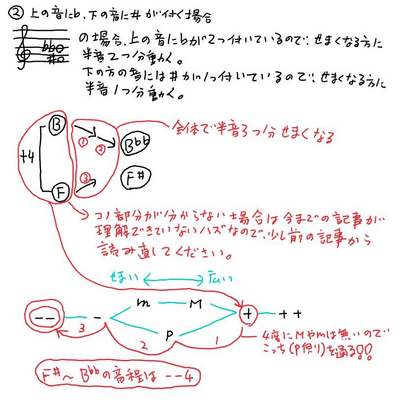 ② 上の音に♭、下の音に♯が付く場合
の場合、上の音に♭が2つ付いているので、せまくなる方に
半音2つ分動く。
下の方の音には♯が1つ付いているので、せまくなる方に
半音1つ分動く。
全体で半音3つ分せまくなる
+4
B
F
①
②
③
B♭♭
F♯
コノ部分が分からない場合は今までの記事が
理解できていないハズなので、少し前の記事から
読み直してください。
せまい
広い
-- - m M + ++
P
3 2 1
4度にMやmは無いので
こっち(P側)を通る!!
F♯~B♭♭の音程は--4